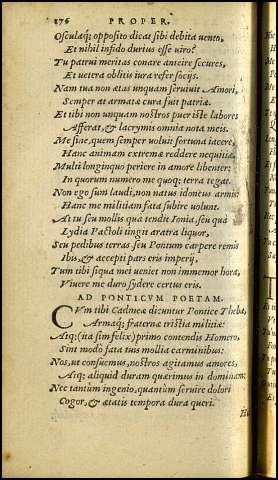 276 PROPER.
Osculaq́; opposito dicat sibi debita uento,
Et nihil infido durius esse uiro?
Tu patrui meritas conare anteire secures,
Et uetera oblitis iura refer socijs.
Nam tua non ætas unquam seruiuit Amori,
Semper at armatæ cura fuit patriæ.
Et tibi non unquam nostros puer iste labores
Afferat, & lacrymis omnia nota meis.
Me sine, quem semper uoluit fortuna iacere,
Hanc animam extremæ reddere nequitiæ.
Multi longinquo periere in amore libenter:
In quorum numero me quoq; terra tegat.
Non ego sum laudi, non natus idoneus armis:
Hanc me militiam fata subire uolunt.
At tu seu mollis quà tendit Ionia, seu quà
Lydia Pactoli tingit aratra liquor,
Seu pedibus terras seu Pontum carpere remis
Ibis, & accepti pars eris imperij,
Tum tibi siqua mei ueniet non immemor hora,
Viuere me duro sydere certus eris.
AD PONTICVM POETAM.
CVm tibi Cadmeæ dicuntur Pontice Thebæ,
Armaq́; fraternæ tristia militiæ:
Atq́; (ita sim felix) primo contendis Homero,
Sint modò fata tuis mollia carminibus:
Nos, ut consuemus, nostros agitamus amores,
Atq; aliquid duram quærimus in dominam:
Nec tantùm ingenio, quantùm seruire dolori
Cogor, & ætatis tempora dura queri.